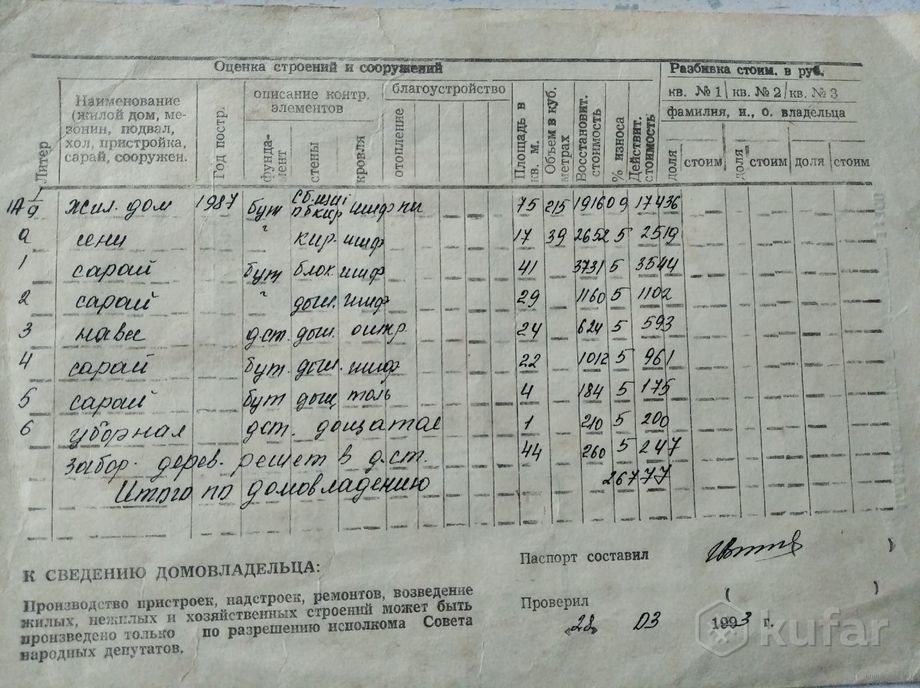 Оценка строений и сооружений
Разбивка стоим. в руб.
Литер
Наименование
(жилой дом, ме-
зонин, подвал,
хол, пристройка,
сарай, сооружен.
Год постр.
описание контр.
элементов
фунда-
мент
стены
кровля
благоустройство
отопление
Площадь в
кв. м.
Объем в куб.
метрах
Восстановит.
стоимость
% износа
Действит.
стоимость
кв. №1 кв. №2 кв. №3
фамилия, и., о. владельца
доля стоим доля стоим доля стоим
жил. дом 1987 бут шиф 75 215 19160 9 17436
а сени " кир. шиф 17 39 2652 5 2519
1 сарай бут блок шиф 41 3731 5 3544
2 сарай " дощ. шиф 29 1160 5 1102
3 навес д.ст. дощ. 24 624 5 593
4 сарай бут. дощ. шиф 22 1012 5 961
5 сарай бут дощ толь 4 184 5 175
6 уборная д.ст. дощатая 1 210 5 200
Забор. дерев. решет в д.ст. 44 260 5 247
Итого по домовладению 26777
К СВЕДЕНИЮ ДОМОВЛАДЕЛЬЦА:
Производство пристроек, надстроек, ремонтов, возведение
жилых, нежилых и хозяйственных строений может быть
произведено только по разрешению исполкома Совета
народных депутатов.
Паспорт составил
Проверил
„28" 03 1993 г.
kufar